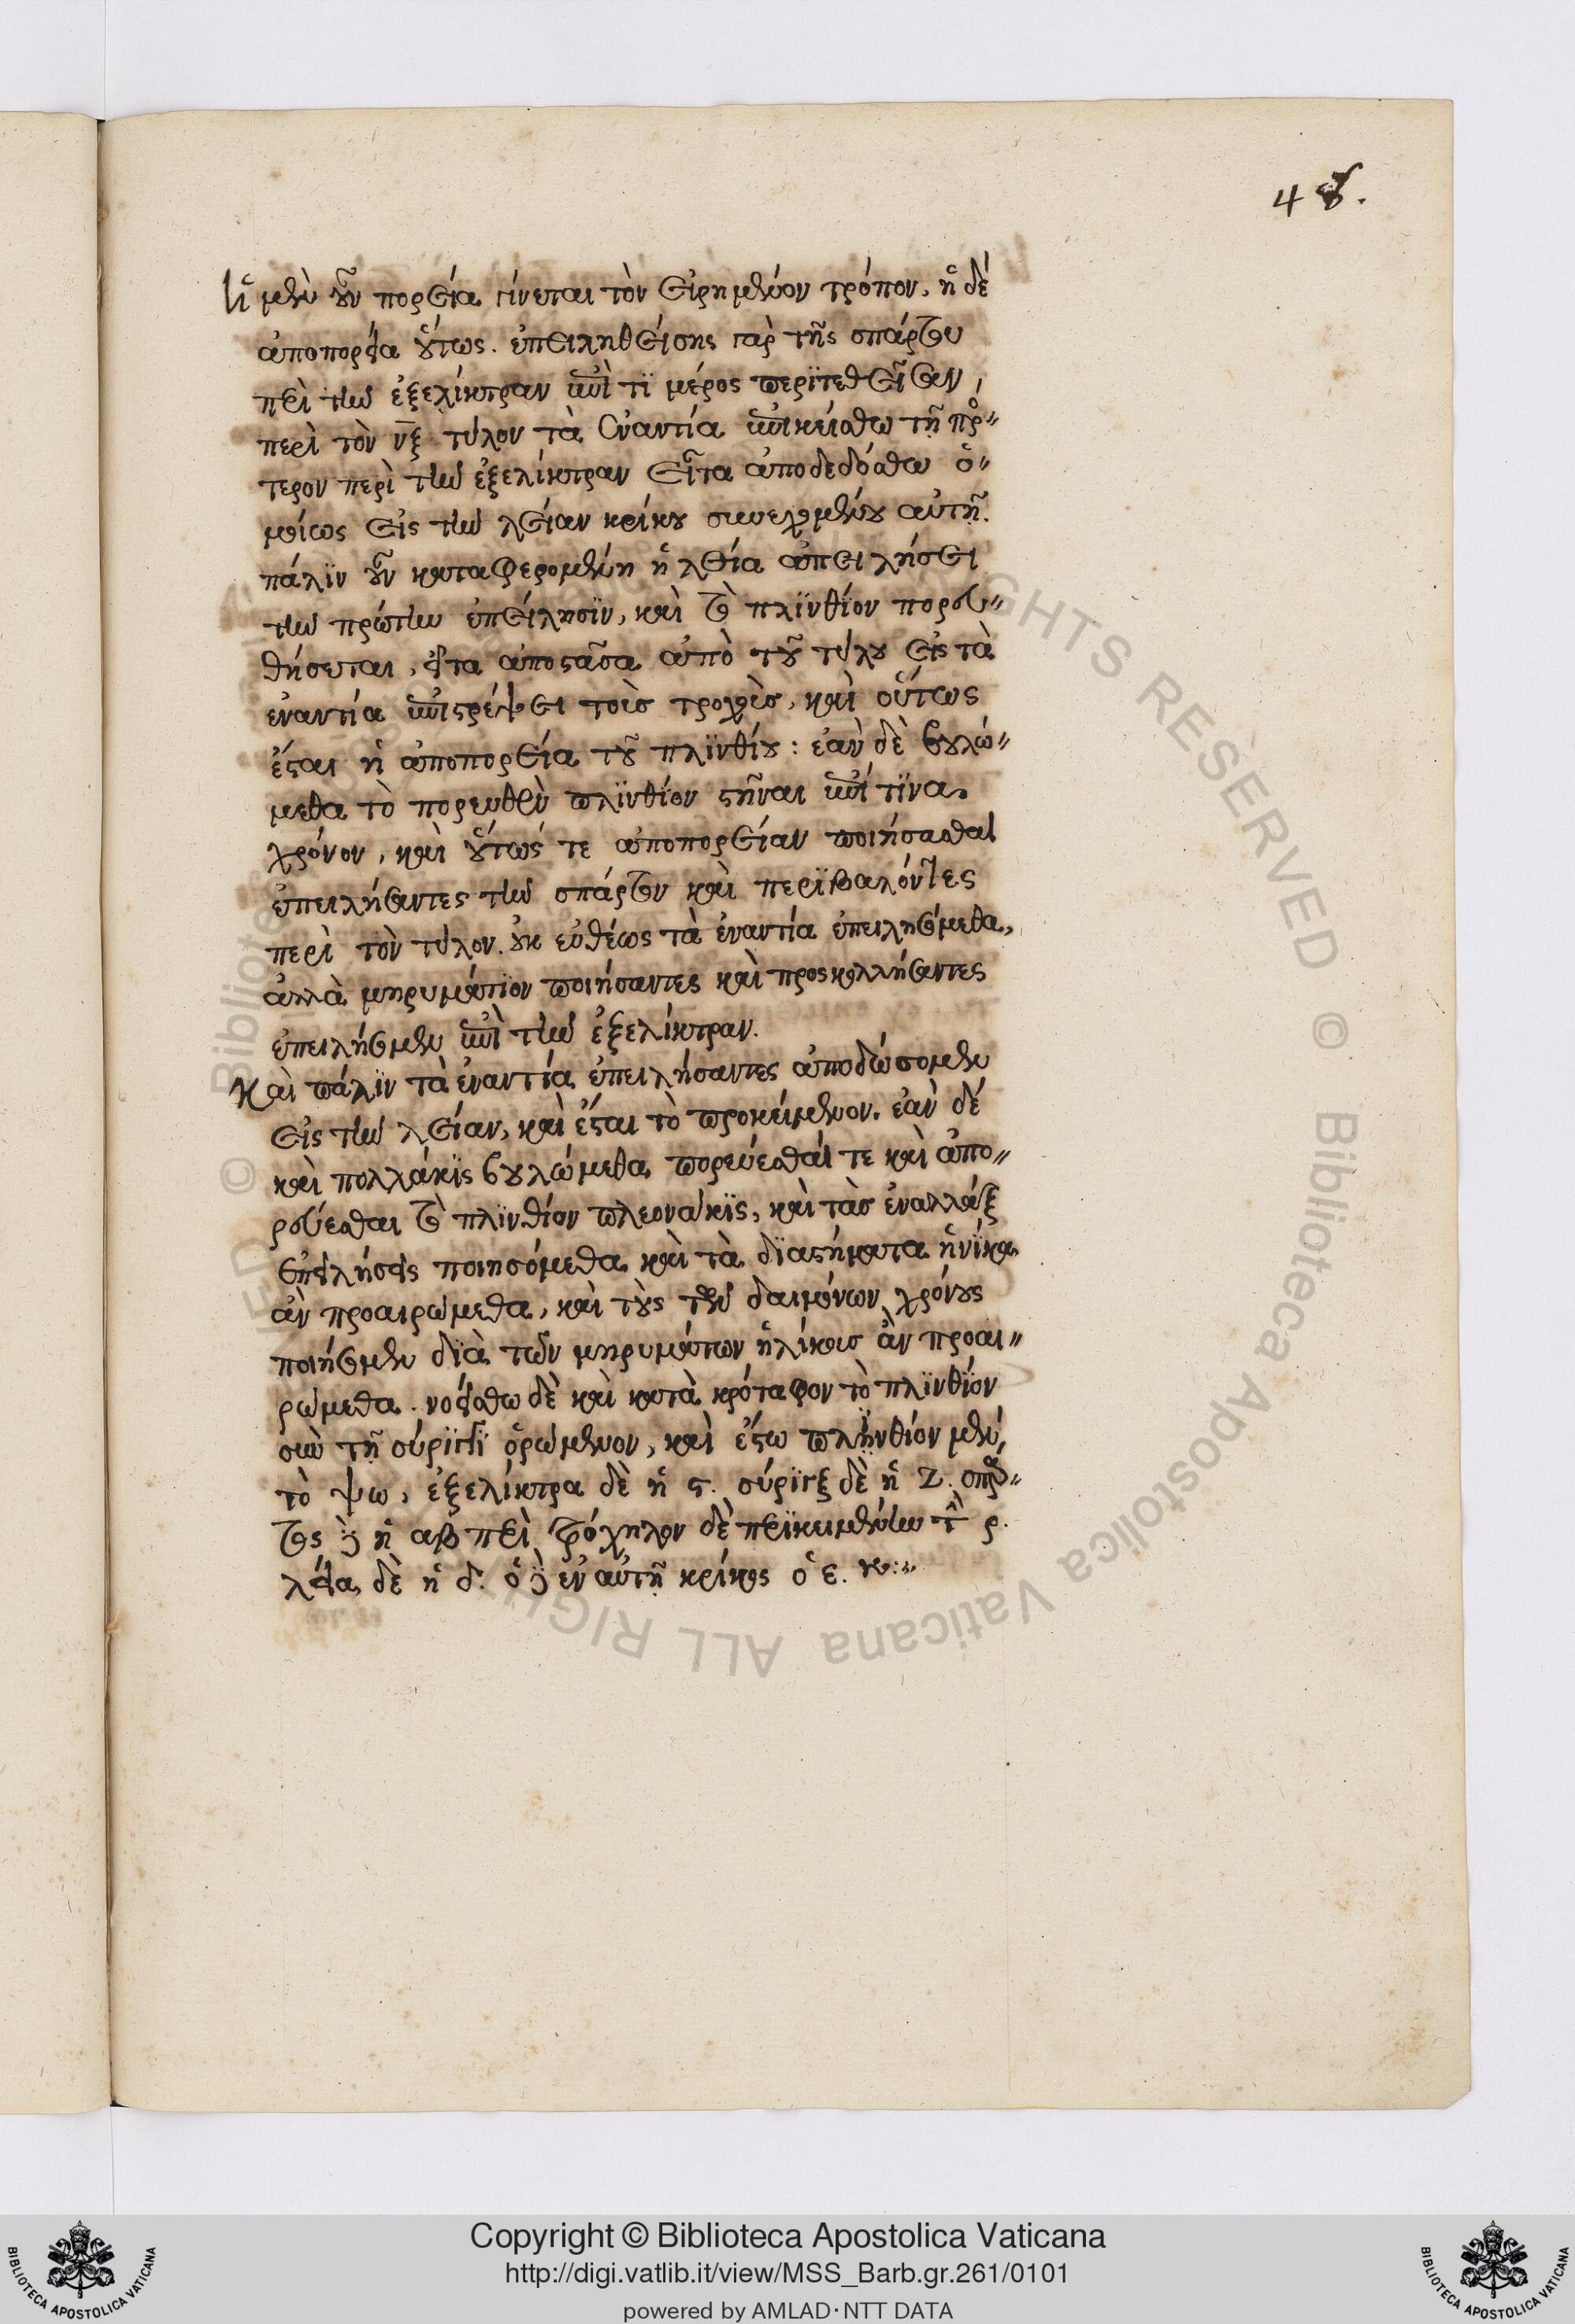 48.
Ἡ μὲν οὖν πορεία γίνεται τὸν εἰρημένον τρόπον, ἡ δὲ
ἀποπορεία οὕτως. ἐπειληθείσης γὰρ τῆς σπάρτου
περὶ τὴν ἐξελίκτραν ἐπί τι μέρος περιτεθεῖσαν,
περὶ τὸν νξ τύλον τὰ ἐναντία ἐπικείσθω τῇ πρό-
τερον περὶ τὴν ἐξελίκτραν εἶτα ἀποδεδόσθω ὁ-
μοίως εἰς τὴν λείαν κρίκου συνεχομένου αὐτῇ.
πάλιν οὖν καταφερομένη ἡ λεία ἀπειλήσει
τὴν πρώτην ἐπείλησιν, καὶ τὸ πλινθίον πορευ-
θήσεται, εἶτα ἀποστᾶσα ἀπὸ τοῦ τύλου εἰς τὰ
ἐναντία ἐπιστρέψει τοὺς τροχοὺς, καὶ οὕτως
ἔσται ἡ ἀποπορεία τοῦ πλινθίου: ἐὰν δὲ βουλώ-
μεθα τὸ πορευθὲν πλινθίον στῆναι ἐπί τινα
χρόνον, καὶ οὕτως τε ἀποπορείαν ποιήσασθαι
ἐπειλήσαντες τὴν σπάρτον καὶ περιβαλόντες
περὶ τὸν τύλον. οὐκ εὐθέως τὰ ἐναντία ἐπειλησόμεθα,
ἀλλὰ μηρυμάτιον ποιήσαντες καὶ προσκολλήσαντες
ἐπειλήσομεν ἐπὶ τὴν ἐξελίκτραν.
Καὶ πάλιν τὰ ἐναντία ἐπειλήσαντες ἀποδώσομεν
εἰς τὴν λείαν, καὶ ἔσται τὸ προκείμενον. ἐὰν δὲ
καὶ πολλάκις βουλώμεθα πορεύεσθαί τε καὶ ἀπο-
ρεύεσθαι τὸ πλινθίον πλεονάκις, καὶ τὰς ἐναλλάξ
ἐπειλήσεις ποιησόμεθα καὶ τὰ διαστήματα ἡνίκα
ἂν προαιρώμεθα, καὶ τοὺς τῶν δαιμόνων χρόνους
ποιήσομεν διὰ τῶν μηρυμάτων ἡλίκοις ἂν προαι-
ρώμεθα. νοείσθω δὲ καὶ κατὰ κρόταφον τὸ πλινθίον
σὺν τῇ σύριγγι ὁρώμενον, καὶ ἔστω πλινθίον μὲν,
τὸ ψω, ἐξελίκτρα δὲ ἡ ς. σύριγξ δὲ ἡ Ζ. σπάρ-
τος δὲ ἡ αβ περὶ τρόχηλον δὲ περικειμένην τὸν ρ.
λεία δὲ ἡ δ. ὁ δὲ ἐν αὐτῇ κρίκος ὁ ε.
Copyright © Biblioteca Apostolica Vaticana
http://digi.vatlib.it/view/MSS_Barb.gr.261/0101
powered by AMLAD·NTT DATA